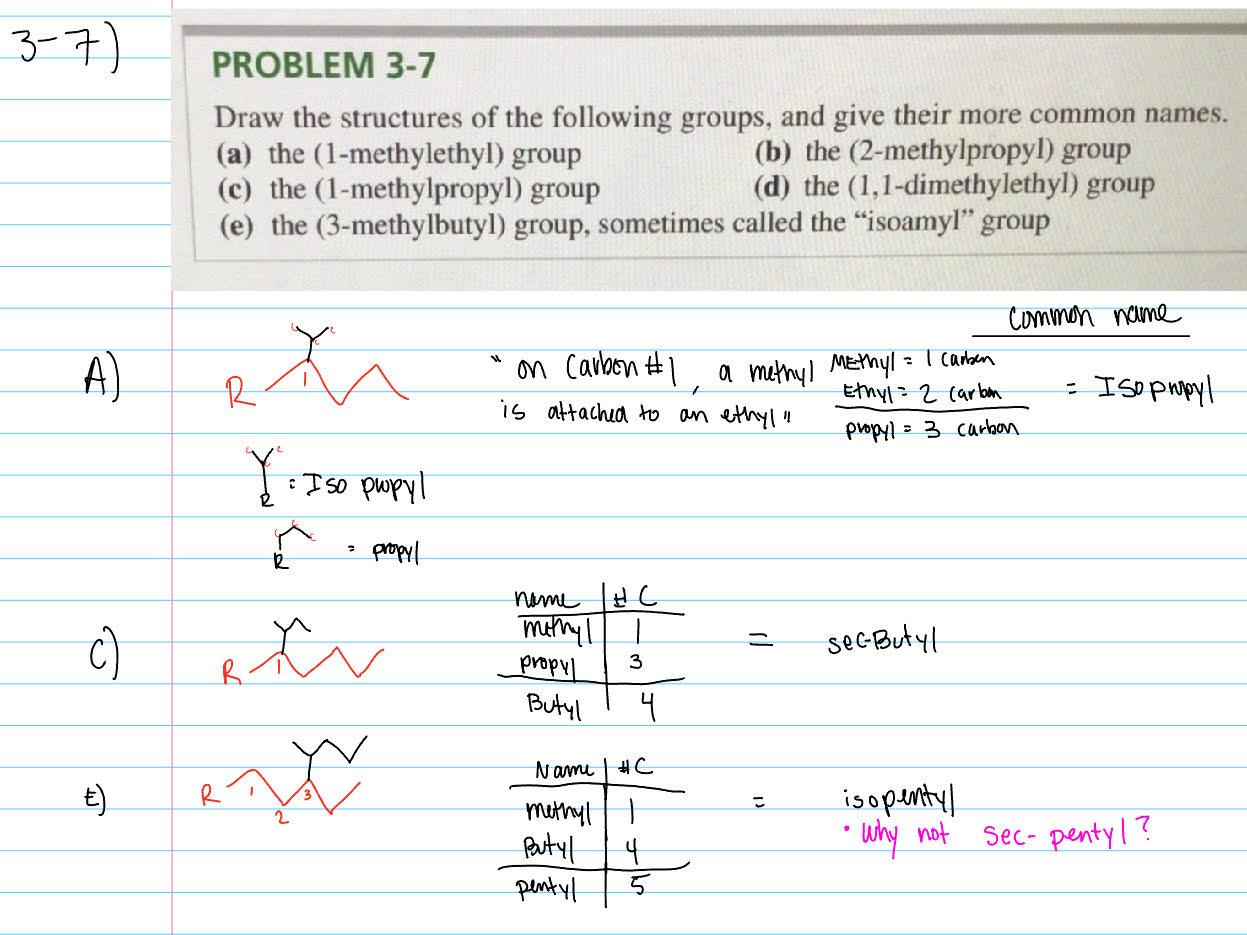 3-7)
PROBLEM 3-7
Draw the structures of the following groups, and give their more common names.
(a) the (1-methylethyl) group (b) the (2-methylpropyl) group
(c) the (1-methylpropyl) group (d) the (1,1-dimethylethyl) group
(e) the (3-methylbutyl) group, sometimes called the “isoamyl” group
Common name
A)
C C
C
R 1
" on Carbon #1, a methyl
is attached to an ethyl"
Methyl = 1 carbon
Ethyl = 2 carbon
propyl = 3 carbon
= Isopropyl
C C
C
R = Iso propyl
C C C
R = propyl
C)
R 1
name # C
methyl 1
propyl 3
Butyl 4
= sec-Butyl
E)
R 1 2 3
Name #C
methyl 1
Butyl 4
pentyl 5
= isopentyl
• Why not Sec- pentyl?